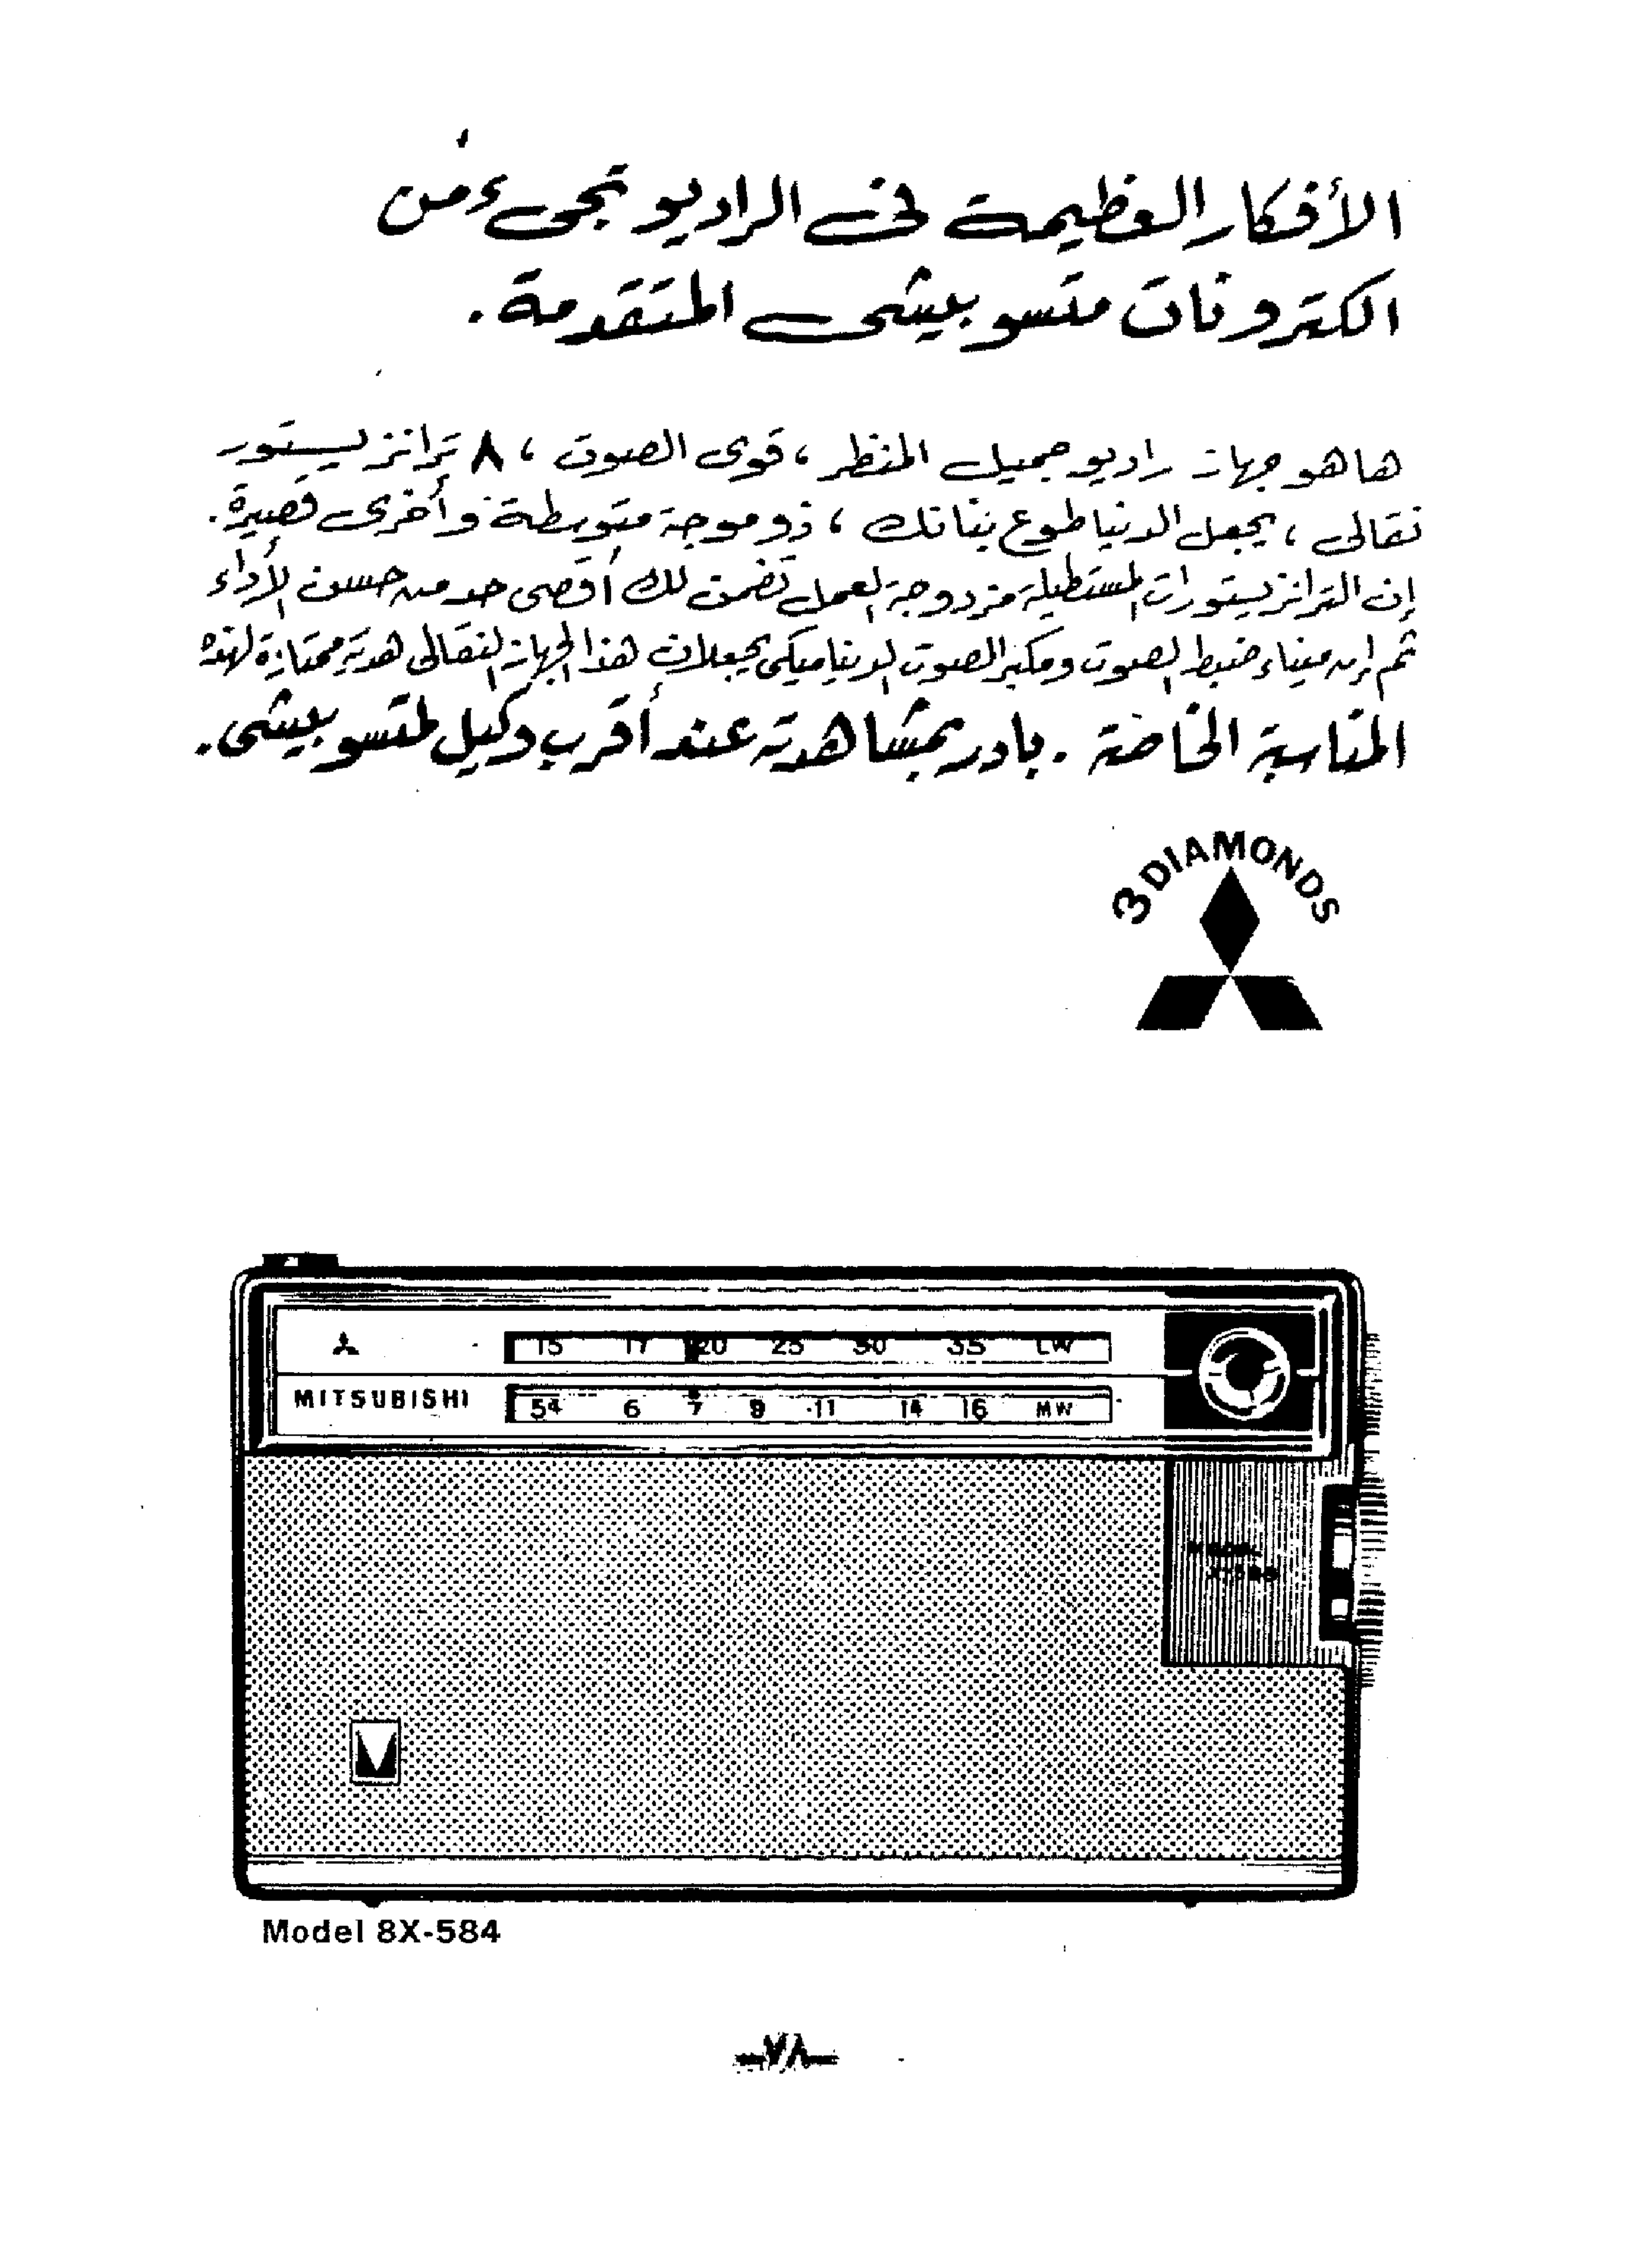 الأفكار العظيمة فى الراديو تجىء من
الكترونات متسوبيشى المتقدمة.
ها هو جهاز راديو جميل المنظر ، قوى الصوت ، ٨ ترانزيستور
نقالى ، يجعل الدنيا طوع بنانك ، ذو موجة متوسطة وأخرى قصيرة.
إن الترانزيستورات المستطيلة مزدوجة العمل تضمن لك أقصى حد من حسن الأداء
ثم إن ميناء ضبط الصوت ومكبر الصوت الديناميكى يجعلان هذا الجهاز النقالى هدية ممتازة لهذه
المناسبة الخاصة . بادر بمشاهدته عند أقرب وكيل لمتسوبيشى.
3 DIAMONDS
15 17 20 25 30 35 LW
MITSUBISHI
54 6 7 9 11 14 16 MW
Model 8X-584
-٧٨-